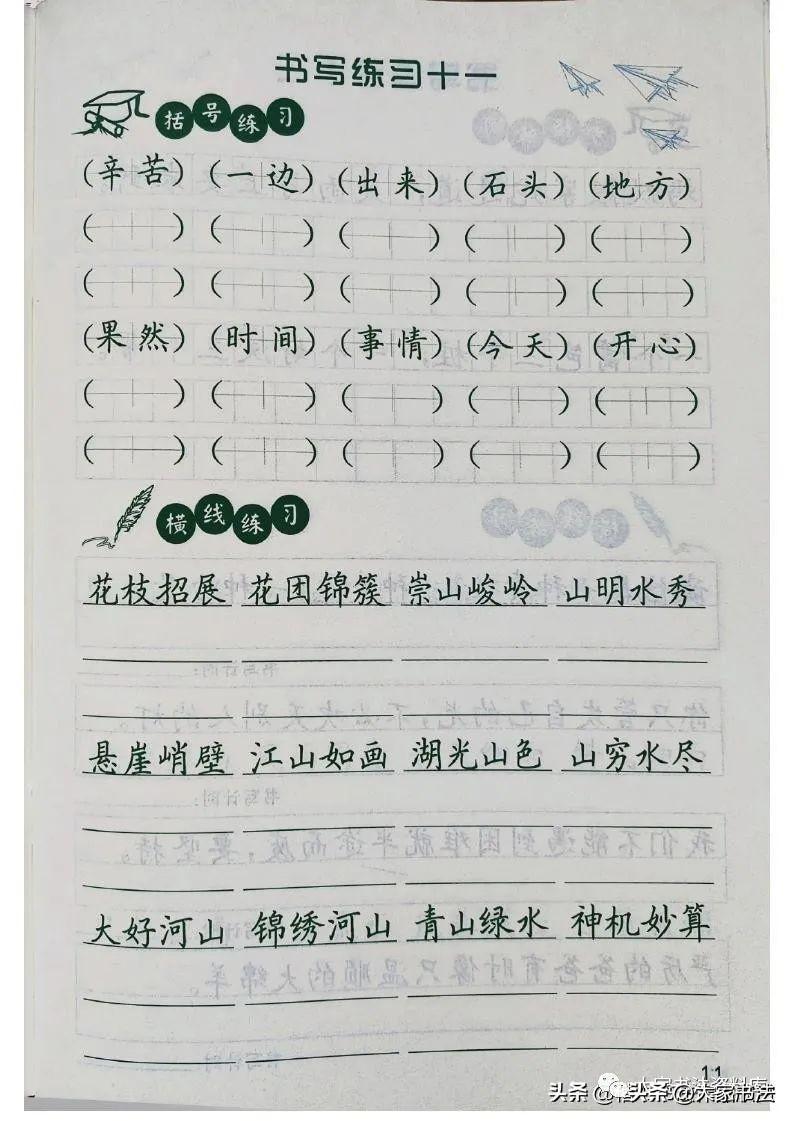 书写练习十一
括号练习
(辛苦) (一边) (出来) (石头) (地方)
(果然) (时间) (事情) (今天) (开心)
横线练习
花枝招展 花团锦簇 崇山峻岭 山明水秀
悬崖峭壁 江山如画 湖光山色 山穷水尽
大好河山 锦绣河山 青山绿水 神机妙算
11